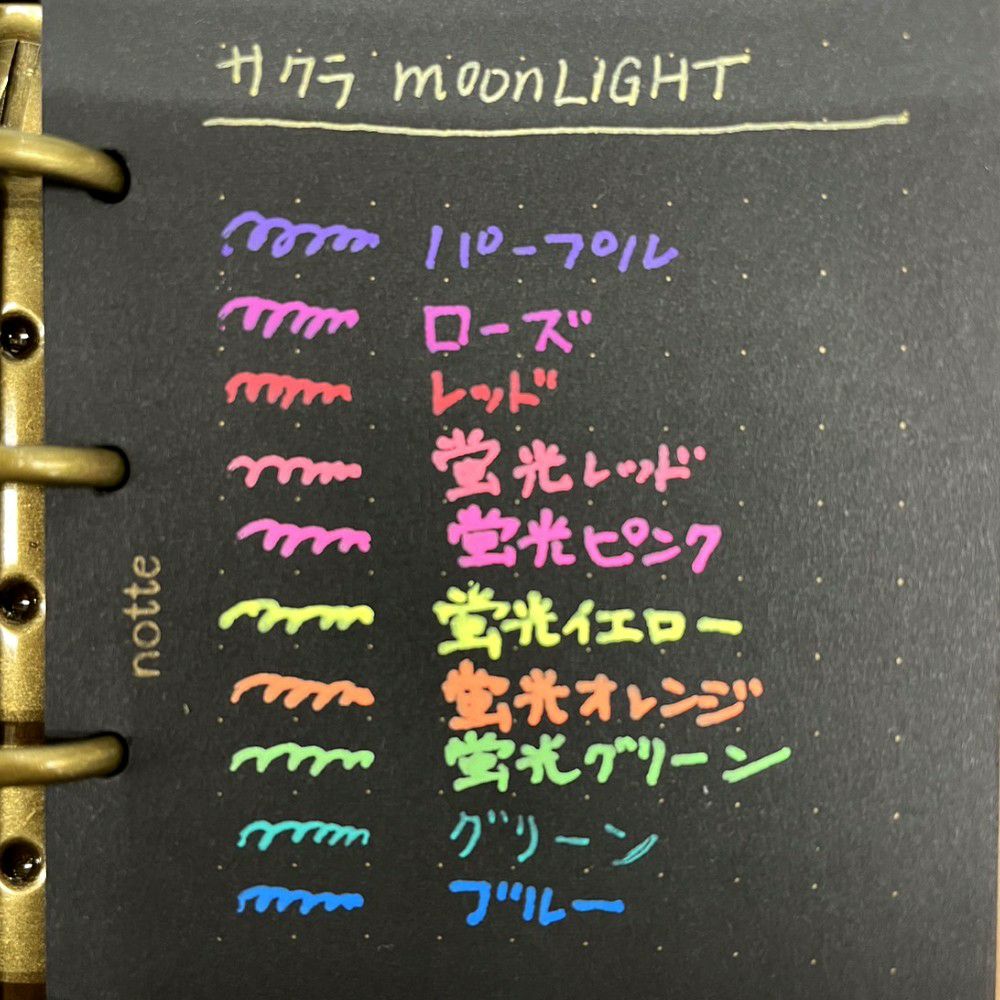 サクラ moonLIGHT
パープル
ローズ
レッド
蛍光レッド
蛍光ピンク
蛍光イエロー
蛍光オレンジ
蛍光グリーン
グリーン
ブルー
notte